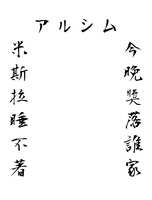 アルシム
今晚獎落誰家
米斯拉睡不著